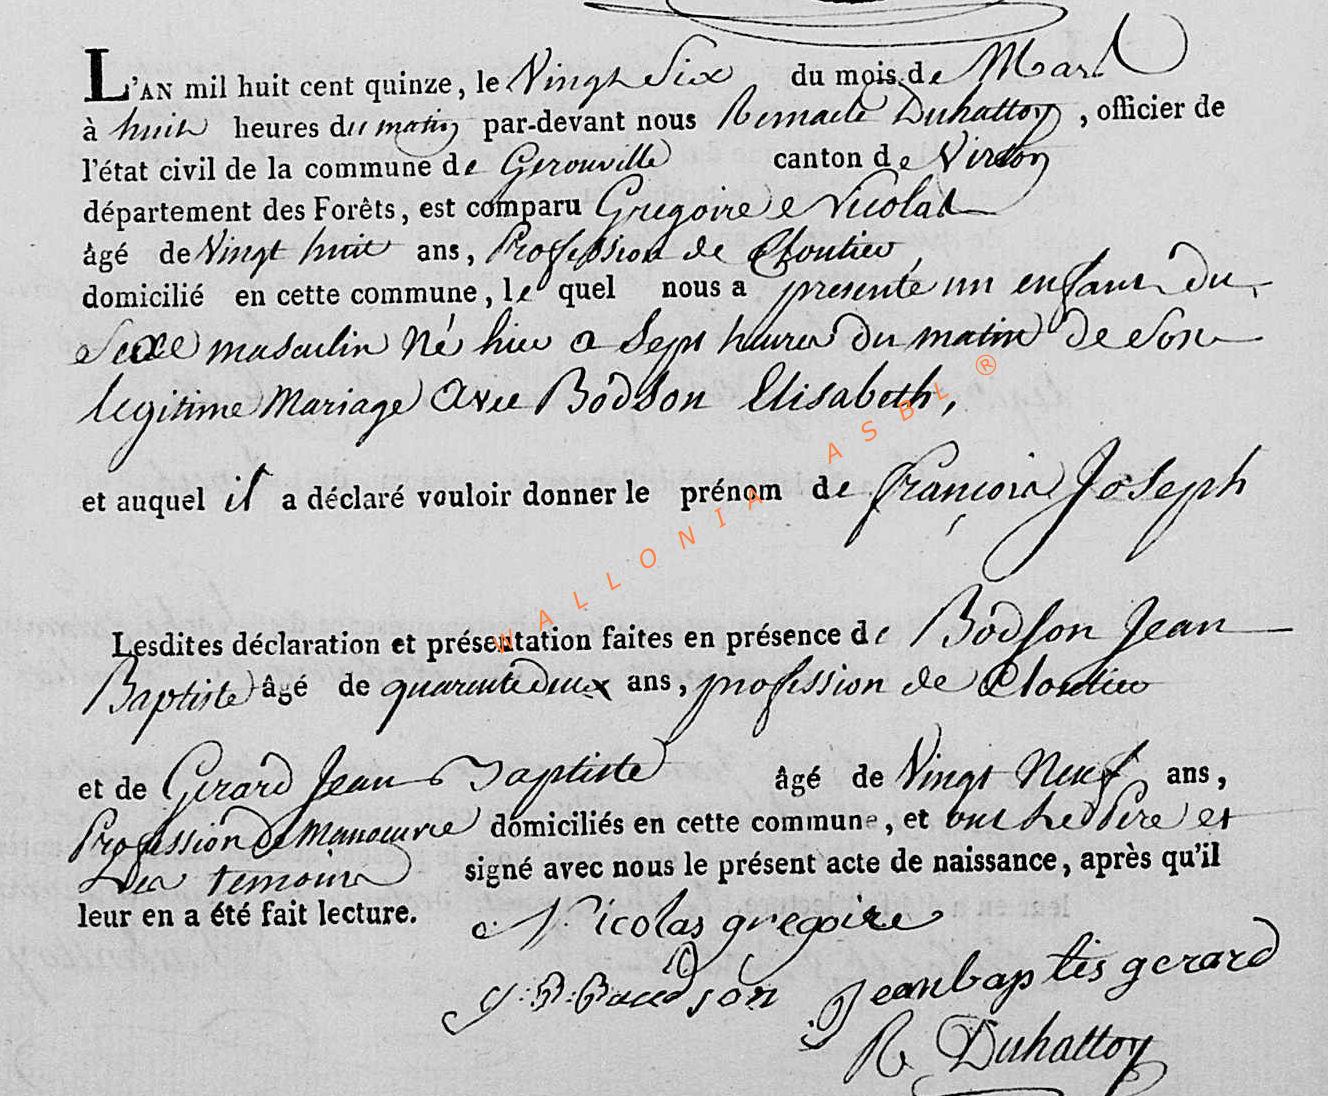 L'AN mil huit cent quinze, le Vingt Six du mois de Mars
à huit heures du matin par-devant nous Remacle Duhattoy, officier de
l'état civil de la commune de Gerouville canton de Virton
département des Forêts, est comparu Gregoire Nicolas
âgé de Vingt huit ans, Profession de Cloutier,
domicilié en cette commune, le quel nous a presenté un enfant du
Sexe masculin Né hier a Sept heures du matin de Son
legitime Mariage avec Bodson Elisabeth,
et auquel il a déclaré vouloir donner le prénom de françois Joseph
Lesdites déclaration et présentation faites en présence de Bodson Jean
Baptiste âgé de quarente deux ans, profession de Cloutier
et de Gerard Jean Baptiste âgé de Vingt Neuf ans,
Profession de Manoeuvre domiciliés en cette commune, et ont Les Pere et
Les temoins signé avec nous le présent acte de naissance, après qu'il
leur en a été fait lecture.
Nicolas gregoire
J. B. Baudson Jeanbaptis gerard
R Duhattoy
WALLONIA ASBL ®